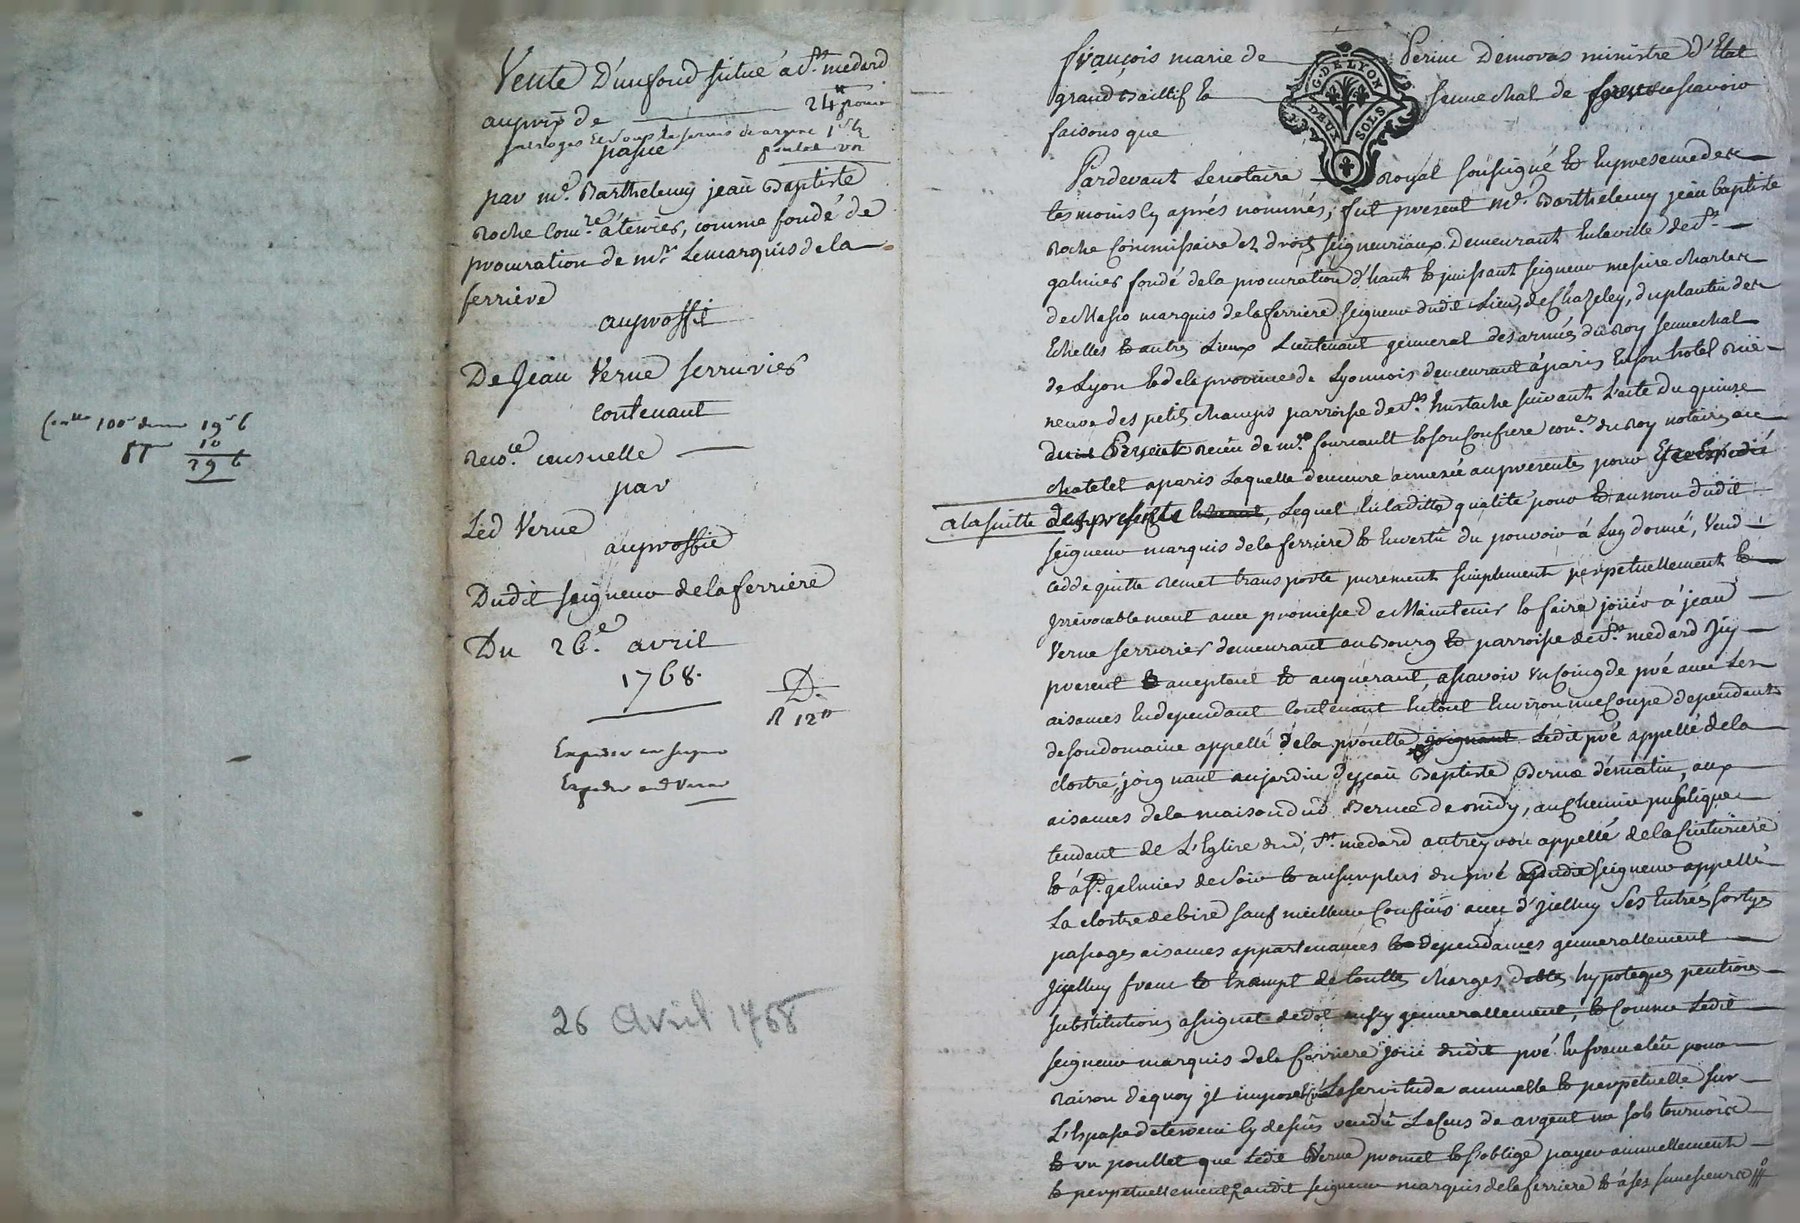 Contlle 100e denier 19s 6
10
29 6
Vente D'un fond situé a St. medard
au prix de 24# pour
par mr. Barthelemy jean Baptiste
Roche Comre. à terrier, comme fondé de
procuration de mr. Le marquis de la
ferriere
au proffit
De Jean Verne serrurier
contenant
reco.ce censuelle
par
Led Verne
au proffit
Dudit seigneur de la ferriere
Du 26e. avril
1768.
D.
R 12s
Expedier au seigneur
Expedier aud Verne
26 Avril 1768
G. DE LYON
DEUX SOLS
françois marie de Perinc Demoras ministre d'Etat
grand Baillif & senechal de forest scavoir
faisons que
Pardevant Le notaire Royal soussigné & En presence des
temoins cy aprés nommés, fut present mr. Barthelemy jean baptiste
Roche Commissaire ez droits seigneuriaux Demeurant En la ville de St.
galmier fondé de la procuration d'haut & puissant seigneur messire charles
de Masso marquis de la ferriere seigneur dudit Lieu, de Chazeley, du plantin des
Echelles & autres Lieux Lieutenant general des armées du Roy sennechal
de Lyon & de la province de Lyonnois demeurant à paris En son hotel rüe
neuve des petits champs parroisse de St. Eustache suivant L'acte du quinze
du present receu de me. fourcault & son Confrere coners. du Roy notaires au
chatelet a paris Laquelle demeure annexée au presentes pour Etre Expedié
a la suitte des presentes, Lequel En laditte qualité pour & au nom dudit
seigneur marquis de la ferriere & En vertû du pouvoir à Luy donné, Vend
cedde quitte remet transporte purement simplement perpetuellement &
Irrévocablement avec promesse de Maintenir & faire joüir à jean
Verne serrurier demeurant au Bourg & parroisse de St. medard Icy
present & acceptant & acquerant, ascavoir un Coing de pré avec Les
aisances En dependant Contenant En tout Environ une Coupe dependant
de son domaine appellé de la proulte joignant Ledit pré appellé de la
clostre, joignant au jardin de jean Baptiste Bernä dématin, aux
aisances de la maison dud Bernä de midy, au Chemin publique
tendant de L'Eglise dud. St. medard au treyvou appellé de la Cinturiere
& à St. galmier de soir & au surplus du pré dudit seigneur appellé
La clostre de bize sauf meilleurs Confins avec d'Icelluy Ses Entrées sortyes
passages aisances appartenances & dependances generallement
Icelluy franc & Exempt de touttes charges debtes hypoteques pentions
substitutions generallement, & Comme Ledit
seigneur marquis de la ferriere joüi dudit pré En franc aleu pour
raison de quoy il impose La servitude annuelle & perpetuelle sur
L'Espasse de terrein Cy dessus vendû Le Cens de argent un sols tournoize
& un poullet que Ledit Verne promet & s'oblige payer annuellement
& perpetuellement audit seigneur marquis de la ferriere & à ses successeurs